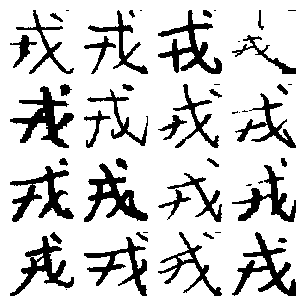 戎戎戎戎
戎戎戎戎
戎戎戎戎
戎戎戎戎